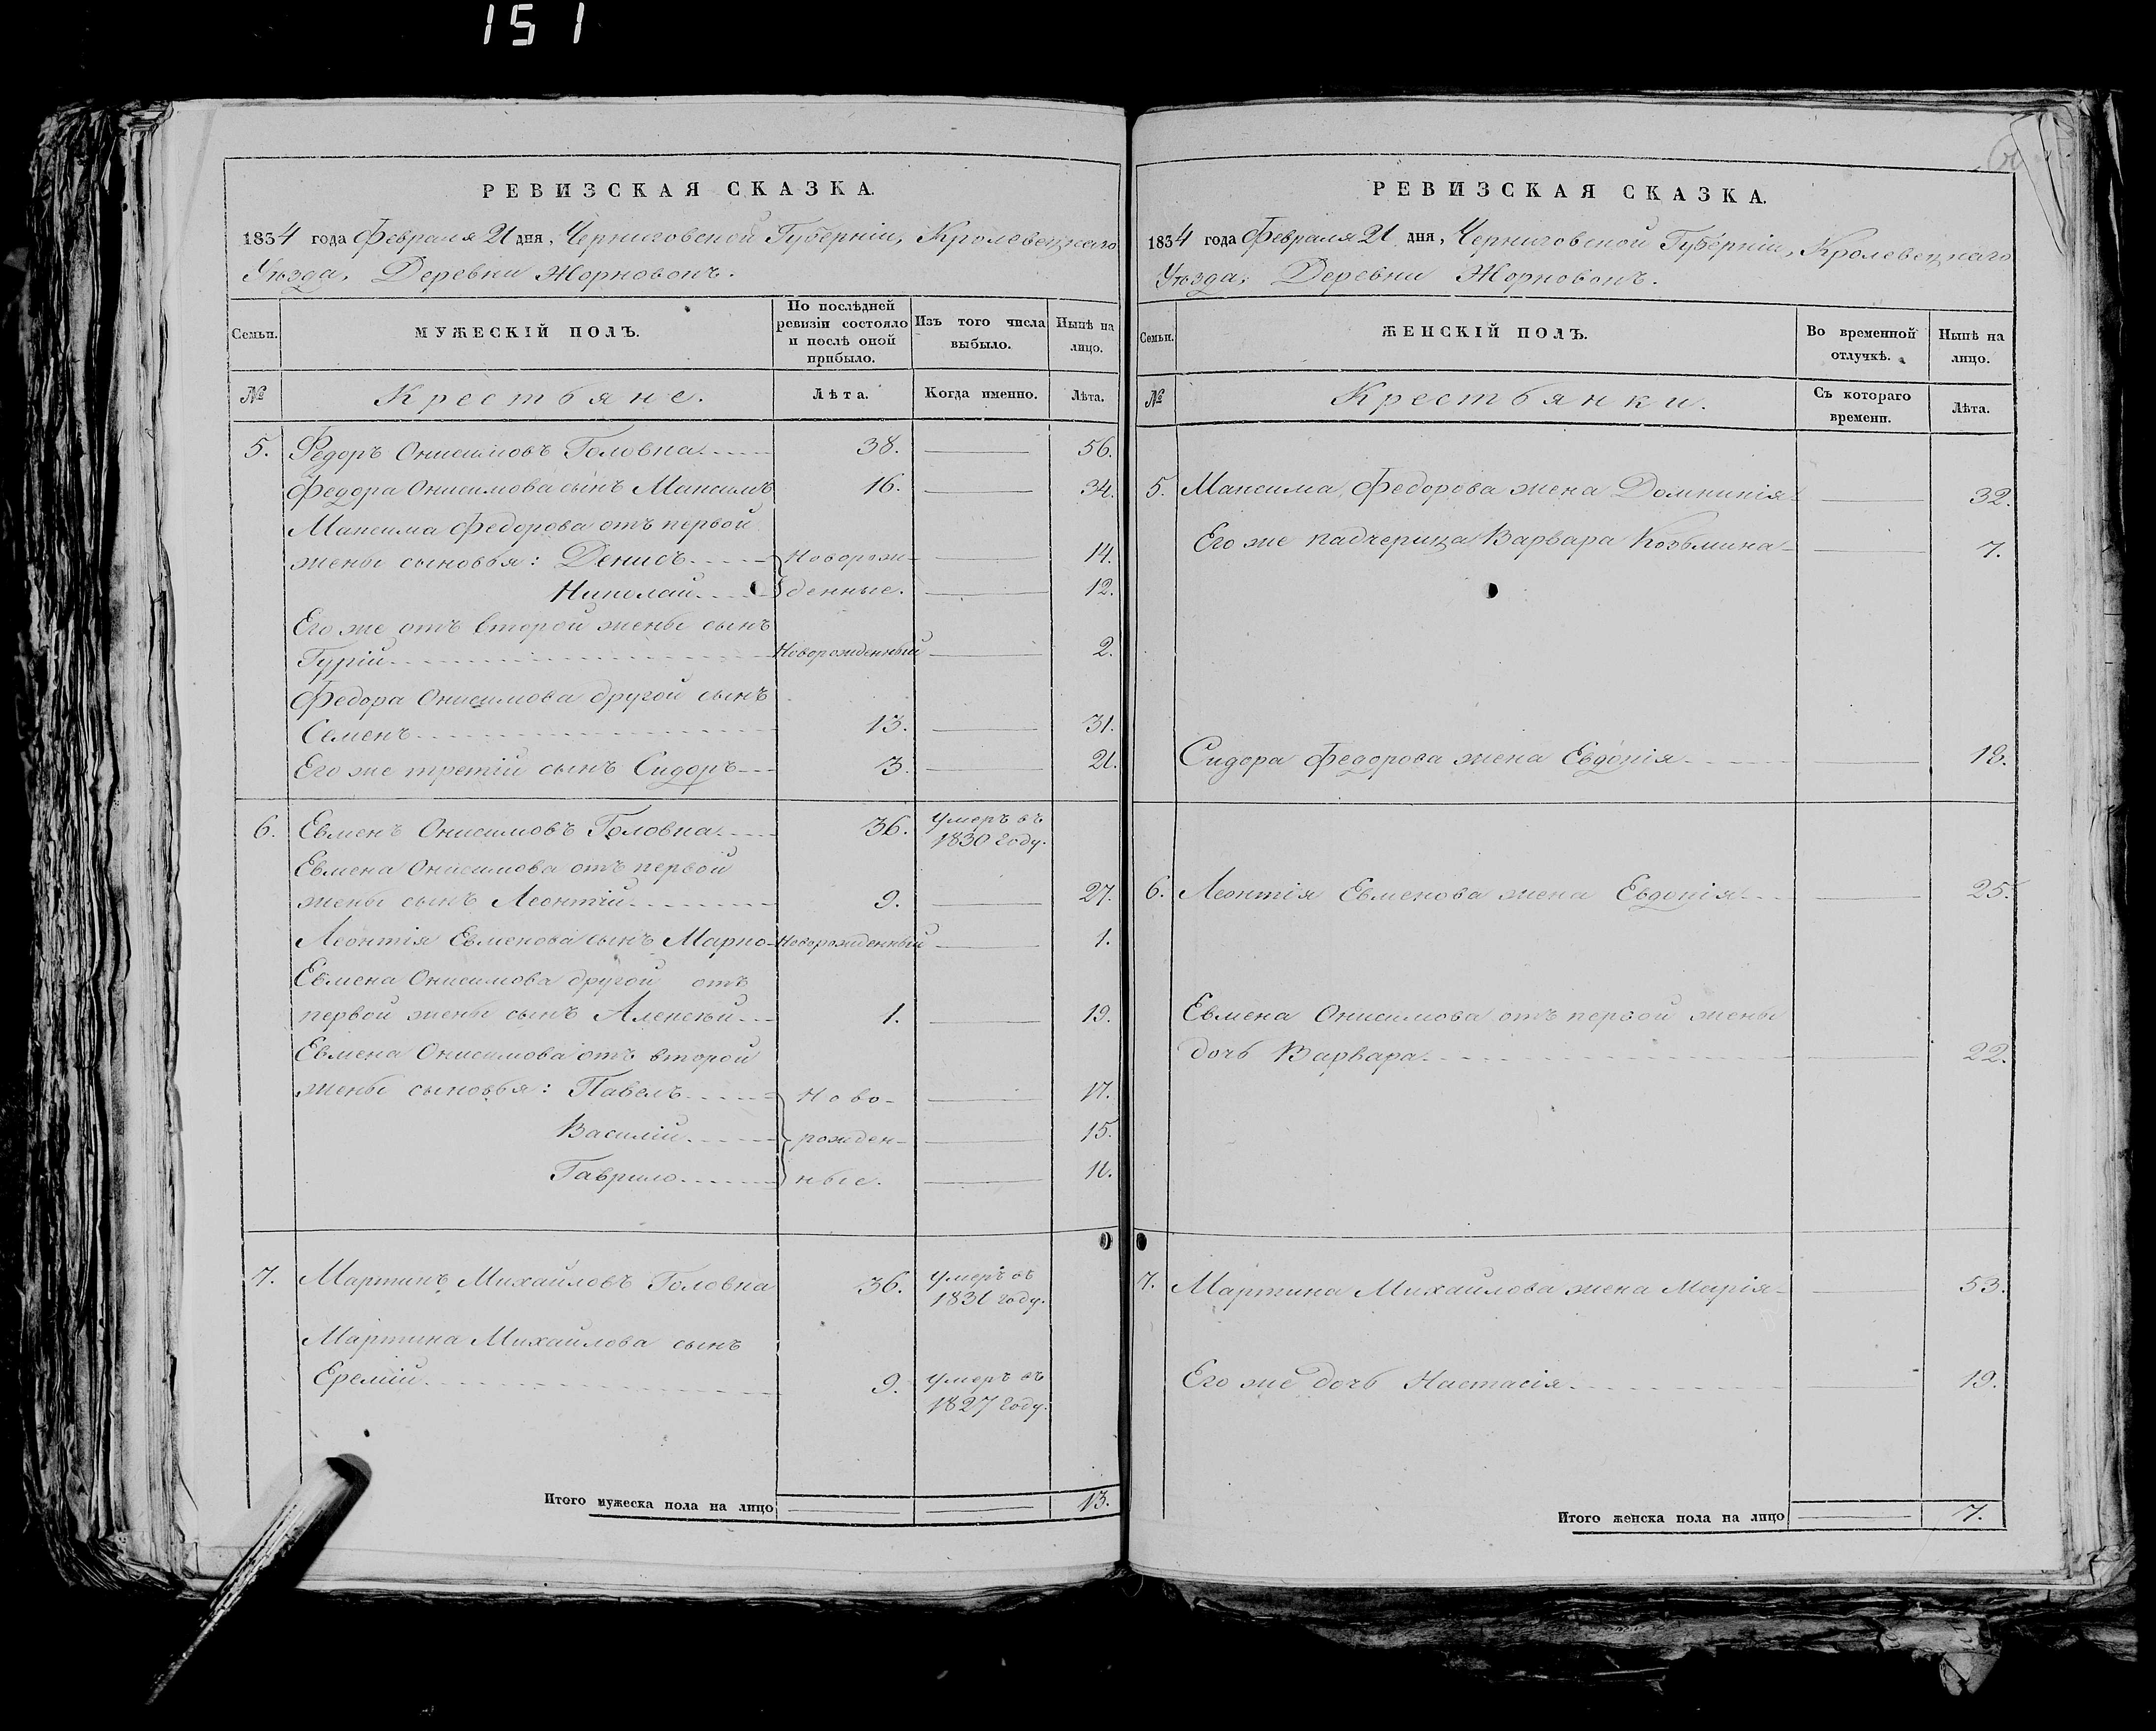 151
РЕВИЗСКАЯ СКАЗКА.
1834 года Февраля 21 дня, Черниговской Губерніи, Кролевецкаго
Уѣзда, Деревни Жорновокъ.
Семьи. МУЖЕСКІЙ ПОЛЪ. По послѣдней ревизіи состояло и послѣ оной прибыло. Изъ того числа выбыло. Нынѣ на лицо.
№ Крестьяне. Лѣта. Когда именно. Лѣта.
5. Федоръ Онисимовъ Головка 38. 56.
Федора Онисимова сынъ Максимъ 16. 34.
Максима Федорова отъ первой
жены сыновья: Денисъ Новорож- 14.
Николай денные. 12.
Его же отъ второй жены сынъ
Гурій Новорожденный 2.
Федора Онисимова другой сынъ
Семенъ 13. 31.
Его же третій сынъ Сидоръ 3. 21.
6. Евменъ Онисимовъ Головка 36. умеръ въ
1830 году.
Евмена Онисимова отъ первой
жены сынъ Леонтій 9. 27.
Леонтія Евменова сынъ Марко Новорожденный 1.
Евмена Онисимова другой отъ
первой жены сынъ Алексѣй 1. 19.
Евмена Онисимова отъ второй
жены сыновья: Павелъ Ново- 17.
Василій рожден- 15.
Гаврило ные. 11.
7. Мартинъ Михайловъ Головка 36. умеръ въ
1831 году.
Мартина Михайлова сынъ
Еремій 9. умеръ въ
1827 году.
Итого мужеска пола на лицо 13.
РЕВИЗСКАЯ СКАЗКА.
1834 года Февраля 21 дня, Черниговской Губерніи, Кролевецкаго
Уѣзда, Деревни Жорновокъ.
Семьи. ЖЕНСКІЙ ПОЛЪ. Во временной отлучкѣ. Нынѣ на лицо.
№ Крестьянки. Съ котораго времени. Лѣта.
5. Максима Федорова жена Домникія 32.
Его же падчерица Варвара Козьмина 7.
Сидора Федорова жена Евдокія 18.
6. Леонтія Евменова жена Евдокія 25.
Евмена Онисимова отъ первой жены
дочь Варвара 22.
7. Мартина Михайлова жена Марія 53.
Его же дочь Настасія 19.
Итого женска пола на лицо 7.